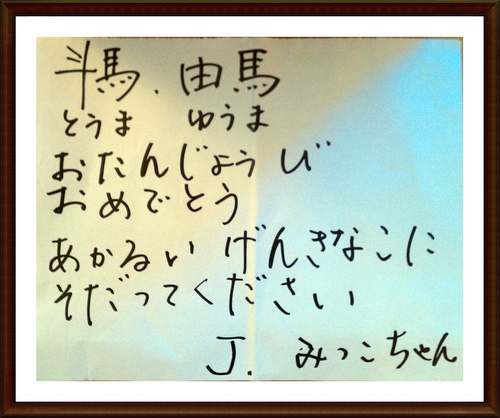 斗馬．由馬
とうま ゆうま
おたんじょうび
おめでとう
あかるい げんきなこに
そだってください
J. みつこちゃん